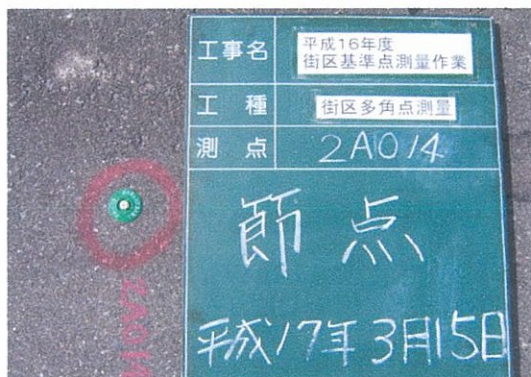 工事名 平成16年度
街区基準点測量作業
工種 街区多角点測量
測点 2A014
節点
平成17年3月15日
2A014